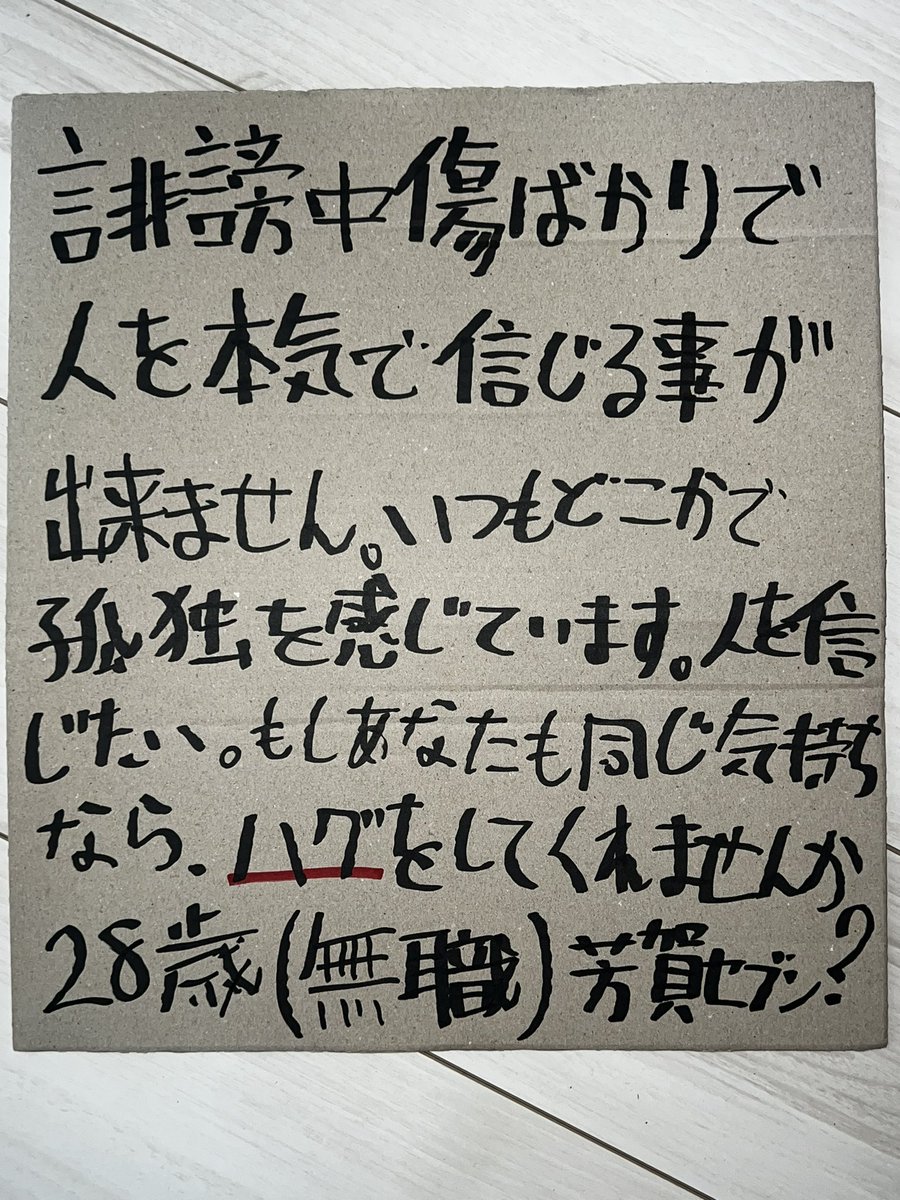 誹謗中傷ばかりで
人を本気で信じる事が
出来ません。いつもどこかで
孤独を感じています。人を信
じたい。もしあなたも同じ気持ち
なら、ハグをしてくれませんか?
28歳(無職)芳賀セブン